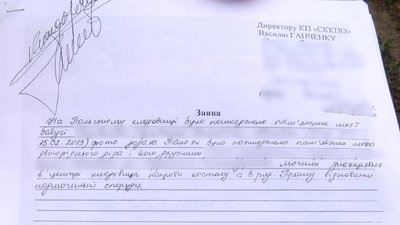 Директору КП «СККПО»
Василю ГАНЧЕНКУ
Заява
На Польському кладовищі було пошкоджено пам'ятник моєї
бабусі
16.02 2013) фото додаю. Також було пошкоджено пам'ятник мого
двоюрідного діда і його дружини
, могили знаходяться
в центрі кладовища напроти костелу ≈ 3 ряд. Прошу відновити
надмогильні споруди.